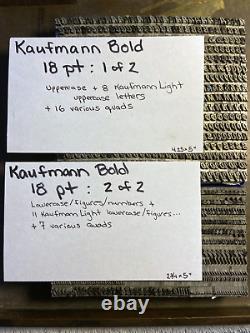 Kaufmann Bold
18 pt : 1 of 2
Uppercase + 8 Kaufmann Light
uppercase letters
+ 16 various quads
Kaufmann Bold
18 pt : 2 of 2
Lowercase/figures/numbers +
11 Kaufmann Light lowercase/figures...
+ 7 various Quads
2 3/4 x 5"
thumbnails.com